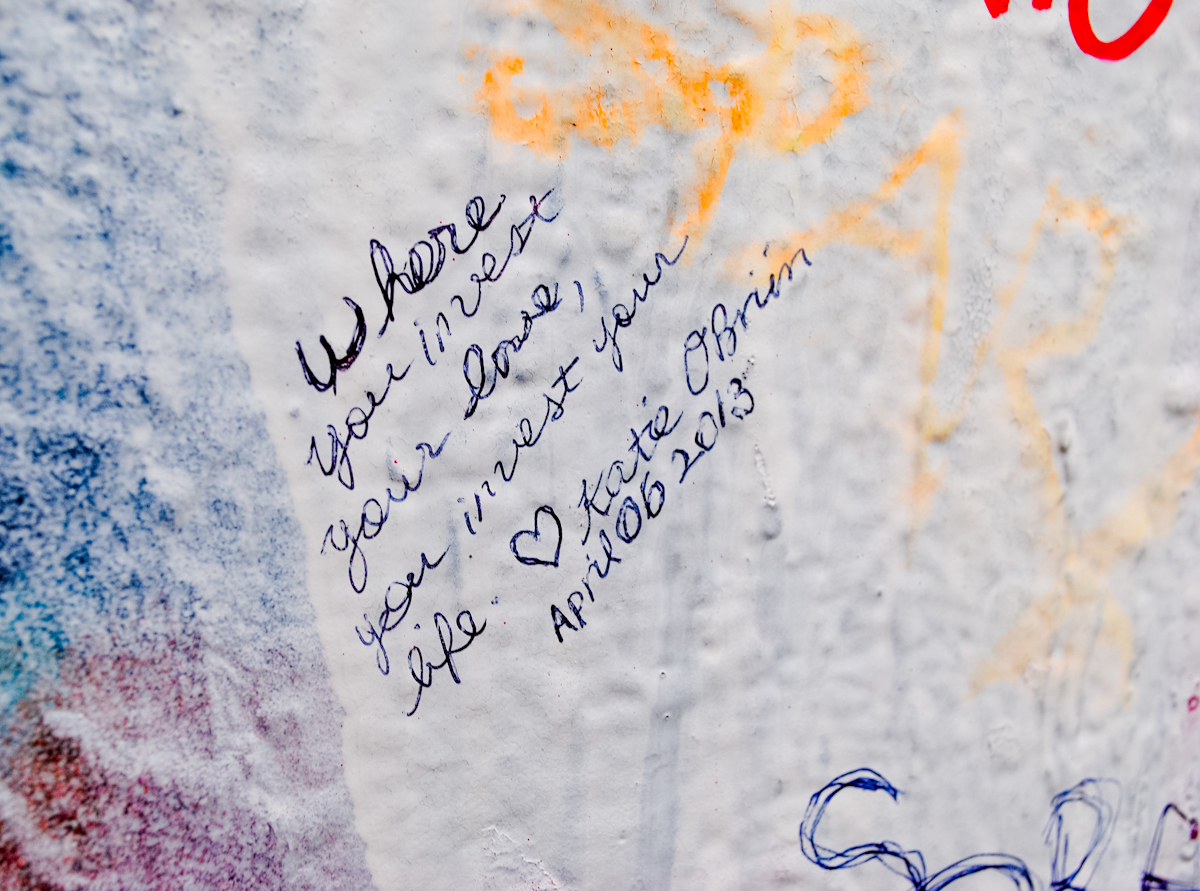 Where
you invest
your love,
you invest your
life.
♡ Katie OBrien
April 06 2013